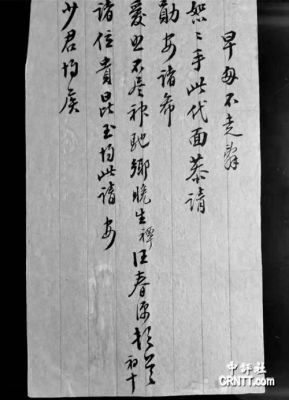 早毋不走辭
恕之手此代面恭請
勛安諸希
愛照不尽神馳鄉晚生禫汪春源頓首
初十
諸位貴昆玉均此請安
少君均候
中評社
CRNTT.com